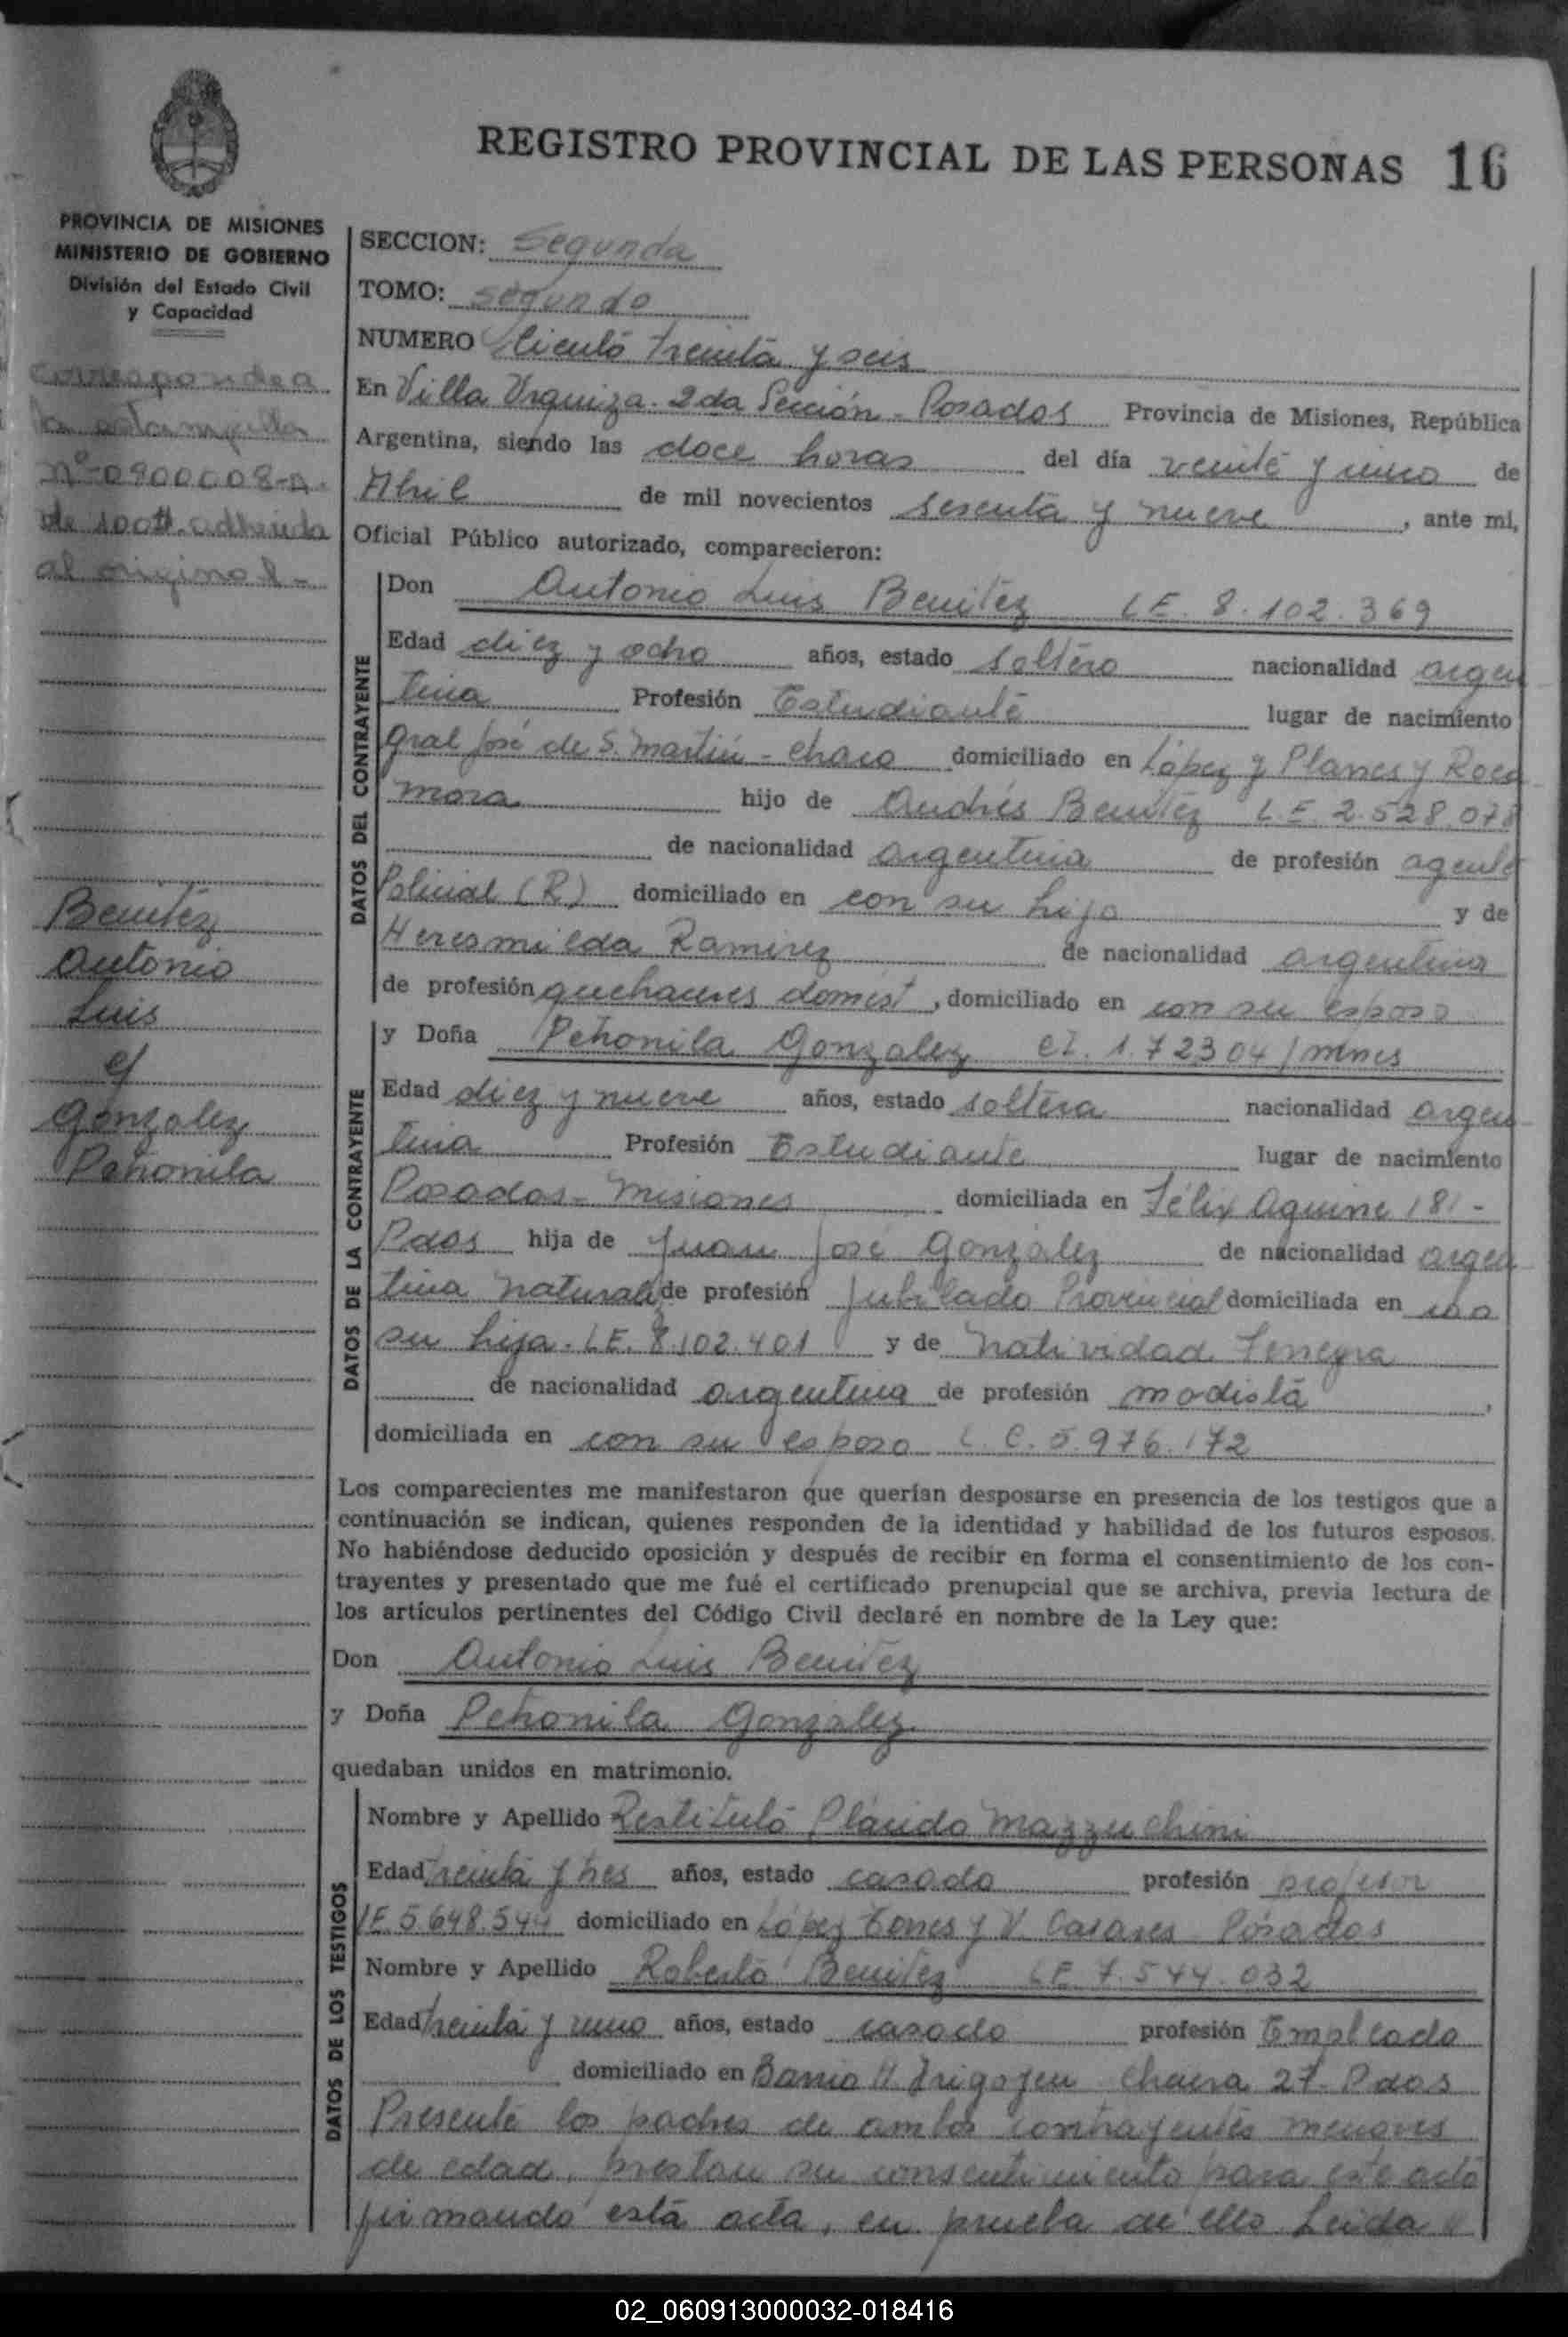 REGISTRO PROVINCIAL DE LAS PERSONAS 16
PROVINCIA DE MISIONES
MINISTERIO DE GOBIERNO
División del Estado Civil
y Capacidad
corresponde a
la estampilla
nº 0900008-A.
de 100 adherida
al original-
Benitez
Antonio
Luis
c/
Gonzalez
Petronila
SECCION: Segunda
TOMO: segundo
NUMERO Ciento treinta y seis
En Villa Urquiza. 2da Sección - Posadas Provincia de Misiones, República
Argentina, siendo las doce horas del día veinte y uno de
Abril de mil novecientos sesenta y nueve, ante mi,
Oficial Público autorizado, comparecieron:
DATOS DEL CONTRAYENTE
Don Antonio Luis Benitez L.E. 8.102.369
Edad diez y ocho años, estado soltero nacionalidad argen
tina Profesión Estudiante lugar de nacimiento
Gral José de S. Martin - Chaco domiciliado en López y Planes y Roca
mora hijo de Andrés Benitez L.E. 2.528.078
de nacionalidad argentina de profesión agente
Policial (R) domiciliado en con su hijo y de
Heresmilda Ramirez de nacionalidad argentina
de profesión quehaceres domést, domiciliado en con su esposo
DATOS DE LA CONTRAYENTE
y Doña Petronila Gonzalez CI. 1.72304/mnes
Edad diez y nueve años, estado soltera nacionalidad argen
tina Profesión Estudiante lugar de nacimiento
Posadas - Misiones domiciliada en Félix Aguirre 181 -
Pdas hija de Juan José González de nacionalidad argen
tina de profesión Jubilado Provincial domiciliada en con
su hija. L.E. 8.102.401 y de Natividad Ferreyra
de nacionalidad argentina de profesión modista,
domiciliada en con su esposo L.C. 5.976.172
Los comparecientes me manifestaron que querían desposarse en presencia de los testigos que a
continuación se indican, quienes responden de la identidad y habilidad de los futuros esposos.
No habiéndose deducido oposición y después de recibir en forma el consentimiento de los con-
trayentes y presentado que me fué el certificado prenupcial que se archiva, previa lectura de
los artículos pertinentes del Código Civil declaré en nombre de la Ley que:
Don Antonio Luis Benitez
y Doña Petronila González
quedaban unidos en matrimonio.
DATOS DE LOS TESTIGOS
Nombre y Apellido Restituto Plácido Mazzuchini
Edad treinta y tres años, estado casado profesión profesor
LE 5.648.544 domiciliado en López Torres y V. Casares Posadas
Nombre y Apellido Roberto Benitez LE 7.544.032
Edad treinta y uno años, estado casado profesión Empleado
domiciliado en Barrio H. Irigoyen Chacra 27 Pdas
Presente los padres de ambos contrayentes menores
de edad, prestan su consentimiento para este acto
firmando esta acta, en prueba de ello Leida
02_060913000032-018416